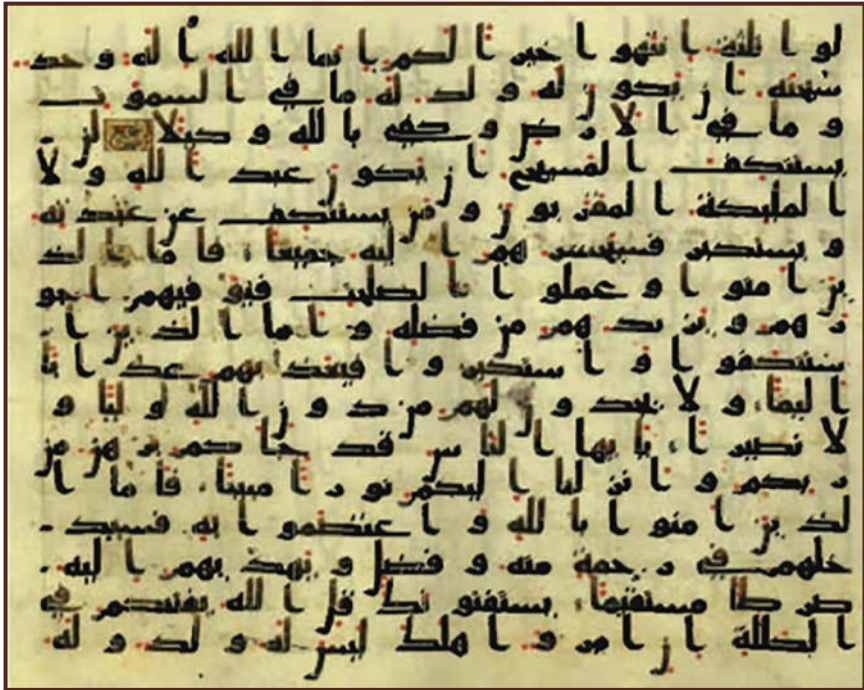 لوا ثلثة انتهوا خيرا لكم انما الله اله وحد
سبحنه ان يكون له ولد له ما في السموت
وما في الارض وكفى بالله وكيلا لن
يستنكف المسيح ان يكون عبدا لله ولا
الملئكة المقربون ومن يستنكف عن عبدته
ويستكبر فسيحشرهم اليه جميعا فاما الذ
ين امنوا وعملوا الصلحت فيوفيهم اجو
رهم ويزيدهم من فضله واما الذين ا
ستنكفوا واستكبروا فيعذبهم عذابا
اليما ولا يجدون لهم من دون الله وليا و
لا نصيرا يايها الناس قد جاكم برهن من
ربكم وانزلنا اليكم نورا مبينا فاما ا
لذين امنوا بالله واعتصموا به فسيد
خلهم في رحمة منه وفضل ويهديهم اليه
صرطا مستقيما يستفتونك قل الله يفتيكم في
الكللة ان امروا هلك ليس له ولد وله